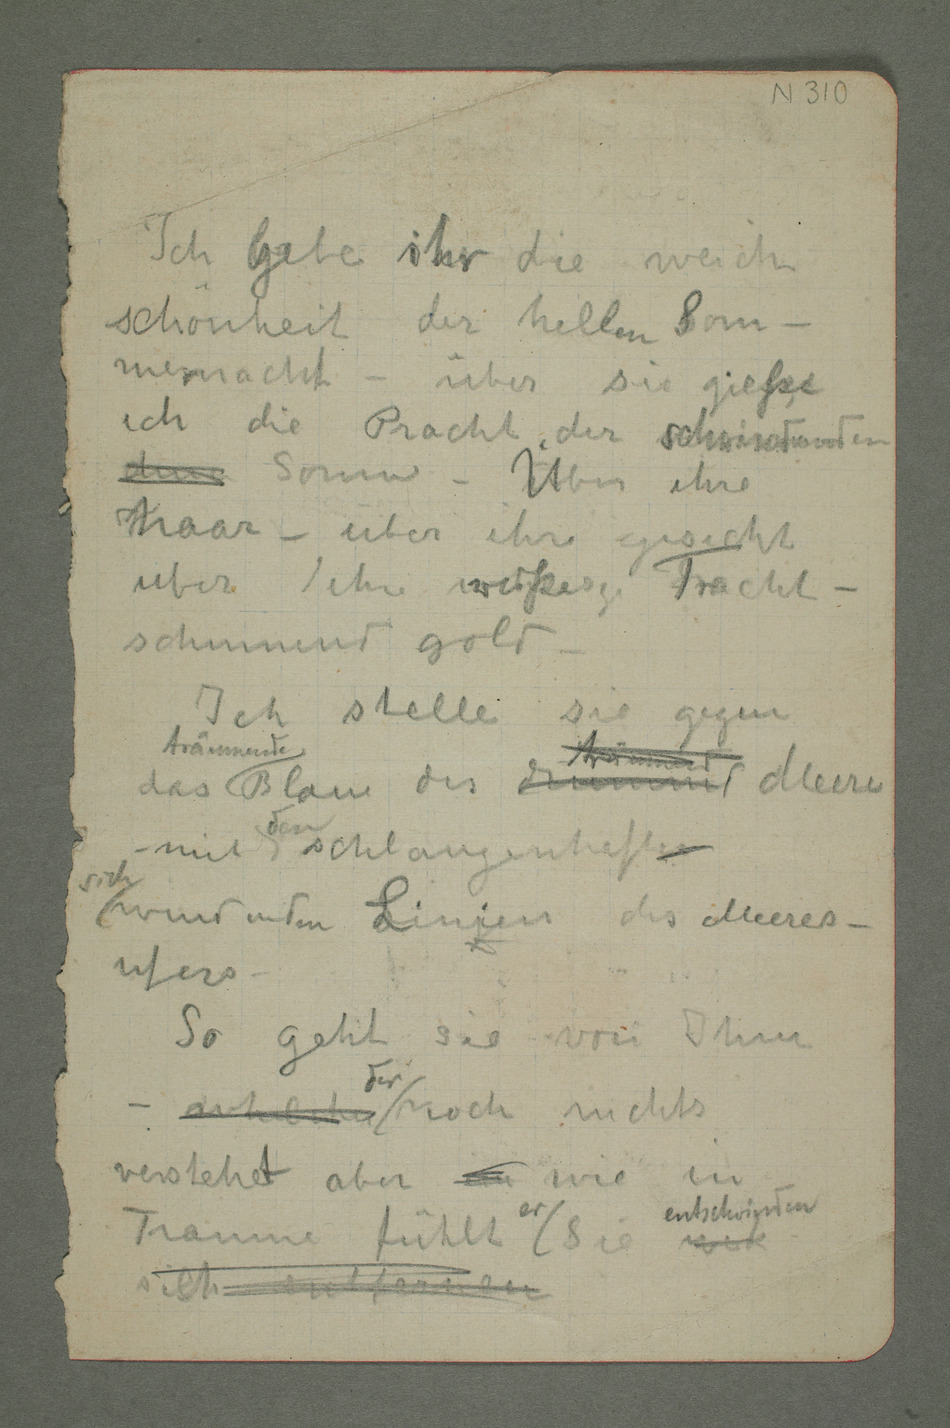 N 310
Ich gebe ihr die weiche
schönheit der hellen Som-
mernacht – über sie gieße
ich die Pracht der schwindenden
Sonne – Über ihre
Haar – über ihre gesicht
über ihre Tracht –
schimmend gold –
Ich stelle sie gegen
träumende träumend
das Blaue des Meeres
den
– mit schlangenhafte
sich
windenden Linien des Meeres-
ufers –
So geht sie von Ihm
der
– welche noch nichts
versteht aber wie in
er entschwinden
Traume fühlt Sie wie
sich entfernen